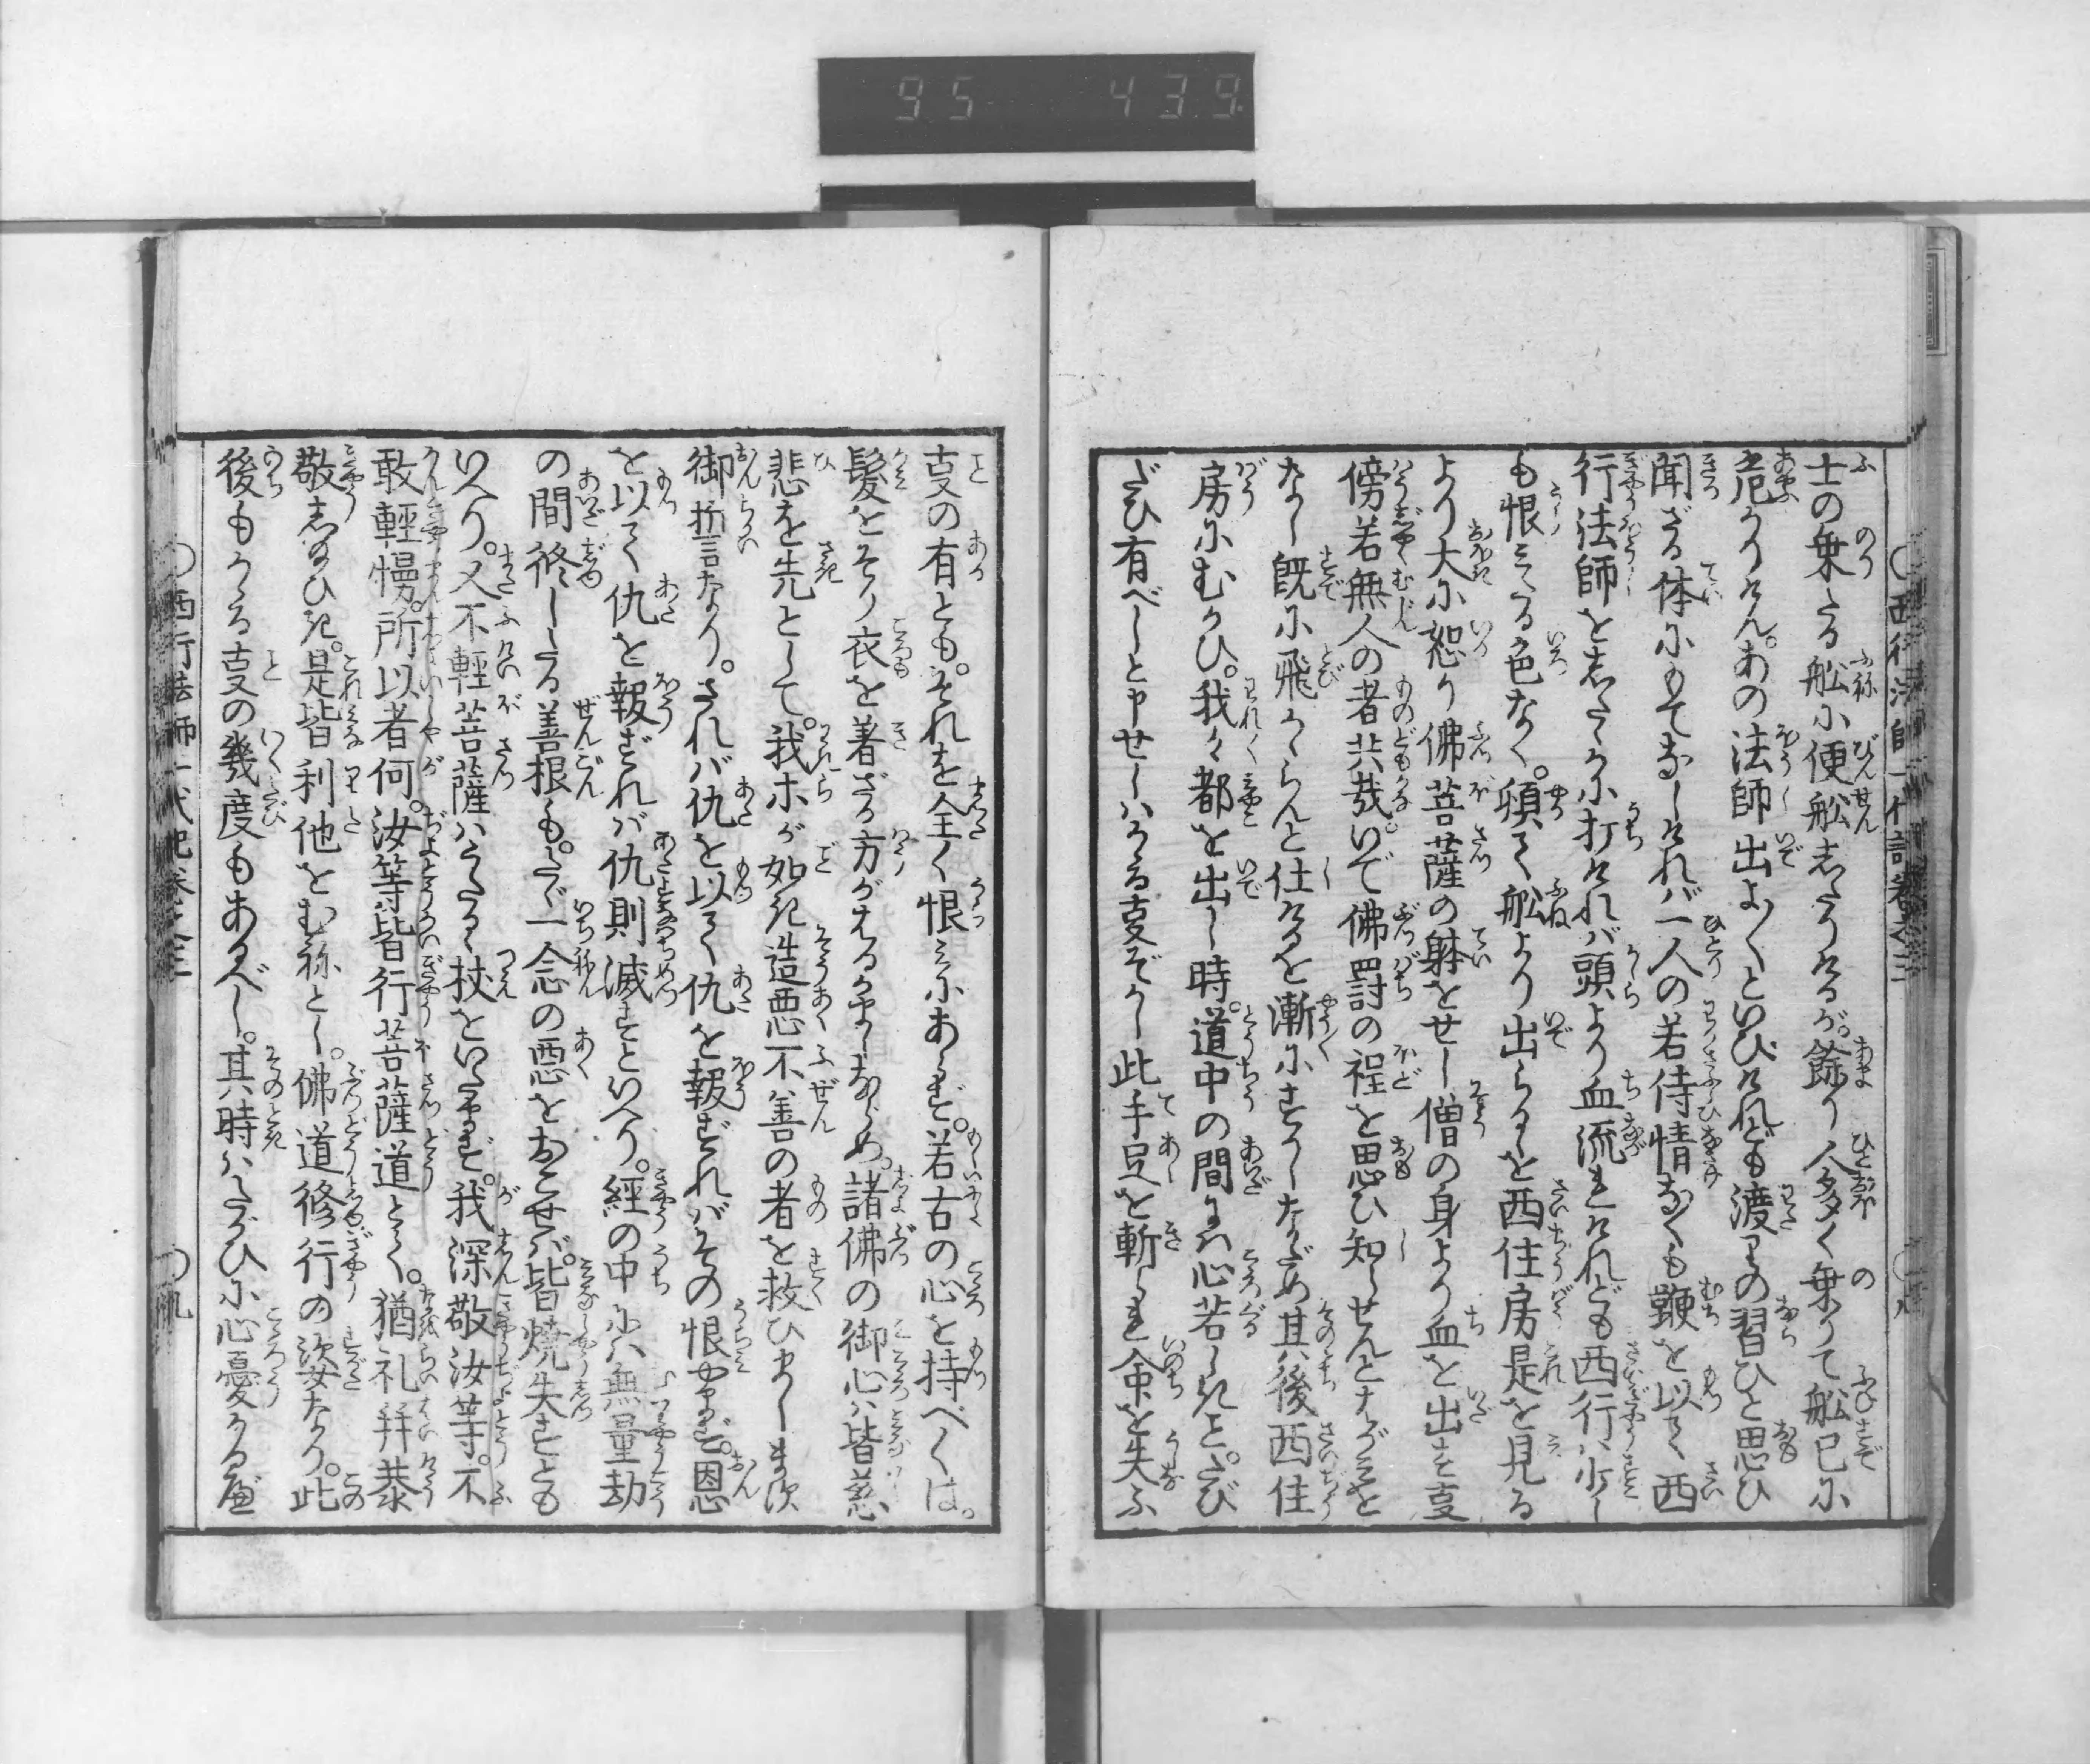 95 439
西行法師一代記卷之三
士の乗たる舩に便舩志たりけるが。餘り人多く乗りて舩已に
危かりけん。あの法師出よ〱といひけれども渡りの習ひと思ひ
聞ざる体にもてなしければ一人の若侍情なくも鞭を以て西
行法師を志たゝかに打ければ頭より血流れけれども西行ハ少し
も恨ミたる色なく。頓て舩より出らるゝを西住房是を見る
より大に怒り佛菩薩の躰をせし僧の身より血を出す叓
傍若無人の者共哉。いで佛罸の程を思ひ知らせんとたぶさを
なし既に飛かゝらんと仕けるを漸にすかしなだめ其後西住
房にむかひ。我々都を出し時。道中の間にハ心苦しきと。たび
だひ有べしと申せしハかゝる叓ぞかし此手足を斬られ命を失ふ
叓の有とも。それを全く恨ミにあらず。若古の心を持べくは。
髪をそり衣を着ざる方がはるかましならめ。諸佛の御心ハ皆慈
悲を先として。我ホが如き造悪不善の者を救ひまします
御誓なり。されバ仇を以て仇を報ずれバその恨やまず。恩
を以て仇を報ずれバ仇則滅すといへり。經の中にハ無量劫
の間修したる善根も。たゞ一念の悪をおこせバ。皆燒失すとも
いへり。又不輕菩薩ハうたるゝ杖をいたまず。我深敬汝等。不
敢輕慢。所以者何。汝等皆行菩薩道とて。猶礼拜恭
敬志給ひき。是皆利他をむねとし。佛道修行の姿なり。此
後もかゝる叓の幾度もあるべし。其時ハたがひに心憂かる應
西行法師一代記卷之三
九